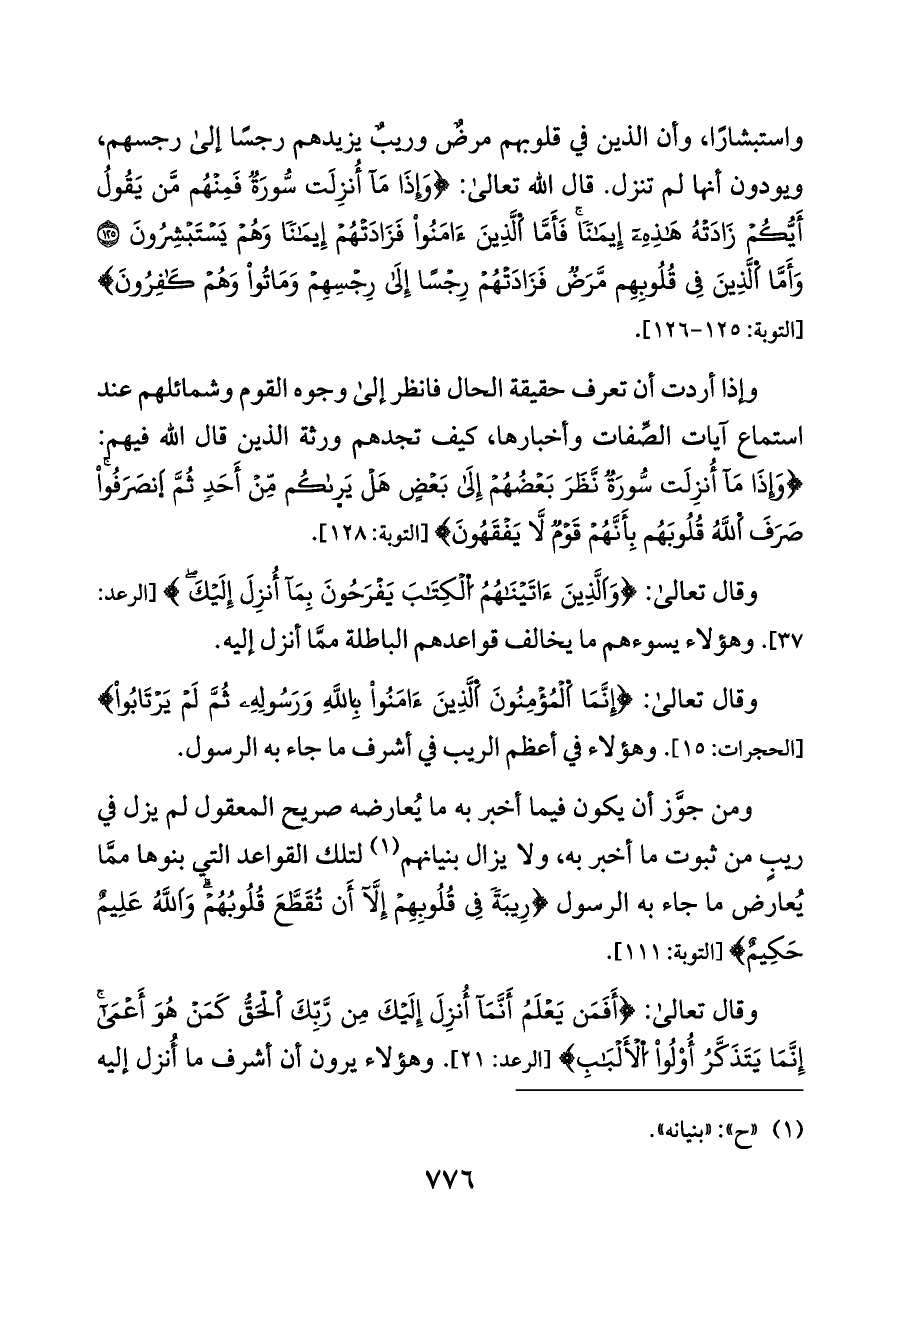 واستبشارًا، وأن الذين في قلوبهم مرضٌ وريبٌ يزيدهم رجسًا إلىٰ رجسهم،
ويودون أنها لم تنزل. قال الله تعالىٰ: ﴿وَإِذَا مَآ أُنزِلَت سُّورَةٌ فَمِنْهُم مَّن يَقُولُ
أَيُّكُمْ زَادَتْهُ هَٰذِهِۦٓ إِيمَٰنٗاۚ فَأَمَّا اَ۬لَّذِينَ ءَامَنُواْ فَزَادَتْهُمْ إِيمَٰنٗا وَهُمْ يَسْتَبْشِرُونَ ۝١٢٥
وَأَمَّا اَ۬لَّذِينَ فِي قُلُوبِهِم مَّرَضٌ فَزَادَتْهُمْ رِجْسًا إِلَىٰ رِجْسِهِمْ وَمَاتُواْ وَهُمْ كَٰفِرُونَ﴾
[التوبة: ١٢٥-١٢٦].
وإذا أردت أن تعرف حقيقة الحال فانظر إلىٰ وجوه القوم وشمائلهم عند
استماع آيات الصِّفات وأخبارها، كيف تجدهم ورثة الذين قال الله فيهم:
﴿وَإِذَا مَآ أُنزِلَت سُّورَةٌ نَّظَرَ بَعْضُهُمْ إِلَىٰ بَعْضٍ هَلْ يَرىٰكُم مِّنْ أَحَدٍ ثُمَّ اَ۪نصَرَفُواْۚ
صَرَفَ اَ۬للَّهُ قُلُوبَهُم بِأَنَّهُمْ قَوْمٌ لَّا يَفْقَهُونَ﴾ [التوبة: ١٢٨].
وقال تعالىٰ: ﴿وَاَلَّذِينَ ءَاتَيْنَٰهُمُ اُ۬لْكِتَٰبَ يَفْرَحُونَ بِمَآ أُنزِلَ إِلَيْكَۖ﴾ [الرعد:
٣٧]. وهؤلاء يسوءهم ما يخالف قواعدهم الباطلة ممَّا أنزل إليه.
وقال تعالىٰ: ﴿إِنَّمَا اَ۬لْمُؤْمِنُونَ اَ۬لَّذِينَ ءَامَنُواْ بِاللَّهِ وَرَسُولِهِۦ ثُمَّ لَمْ يَرْتَابُواْ﴾
[الحجرات: ١٥]. وهؤلاء في أعظم الريب في أشرف ما جاء به الرسول.
ومن جوَّز أن يكون فيما أخبر به ما يُعارضه صريح المعقول لم يزل في
ريبٍ من ثبوت ما أخبر به، ولا يزال بنيانهم(١) لتلك القواعد التي بنوها ممَّا
يُعارض ما جاء به الرسول ﴿رِيبَةٗ فِي قُلُوبِهِمْ إِلَّآ أَن تُقَطَّعَ قُلُوبُهُمْۗ وَاَللَّهُ عَلِيمٌ
حَكِيمٌ﴾ [التوبة: ١١١].
وقال تعالىٰ: ﴿أَفَمَن يَعْلَمُ أَنَّمَآ أُنزِلَ إِلَيْكَ مِن رَّبِّكَ اَ۬لْحَقُّ كَمَنْ هُوَ أَعْمَىٰٓۚ
إِنَّمَا يَتَذَكَّرُ أُوْلُواْ اُ۬لْأَلْبَٰبِ﴾ [الرعد: ٢١]. وهؤلاء يرون أن أشرف ما أُنزل إليه
(١) «ح»: «بنيانه».
٧٧٦